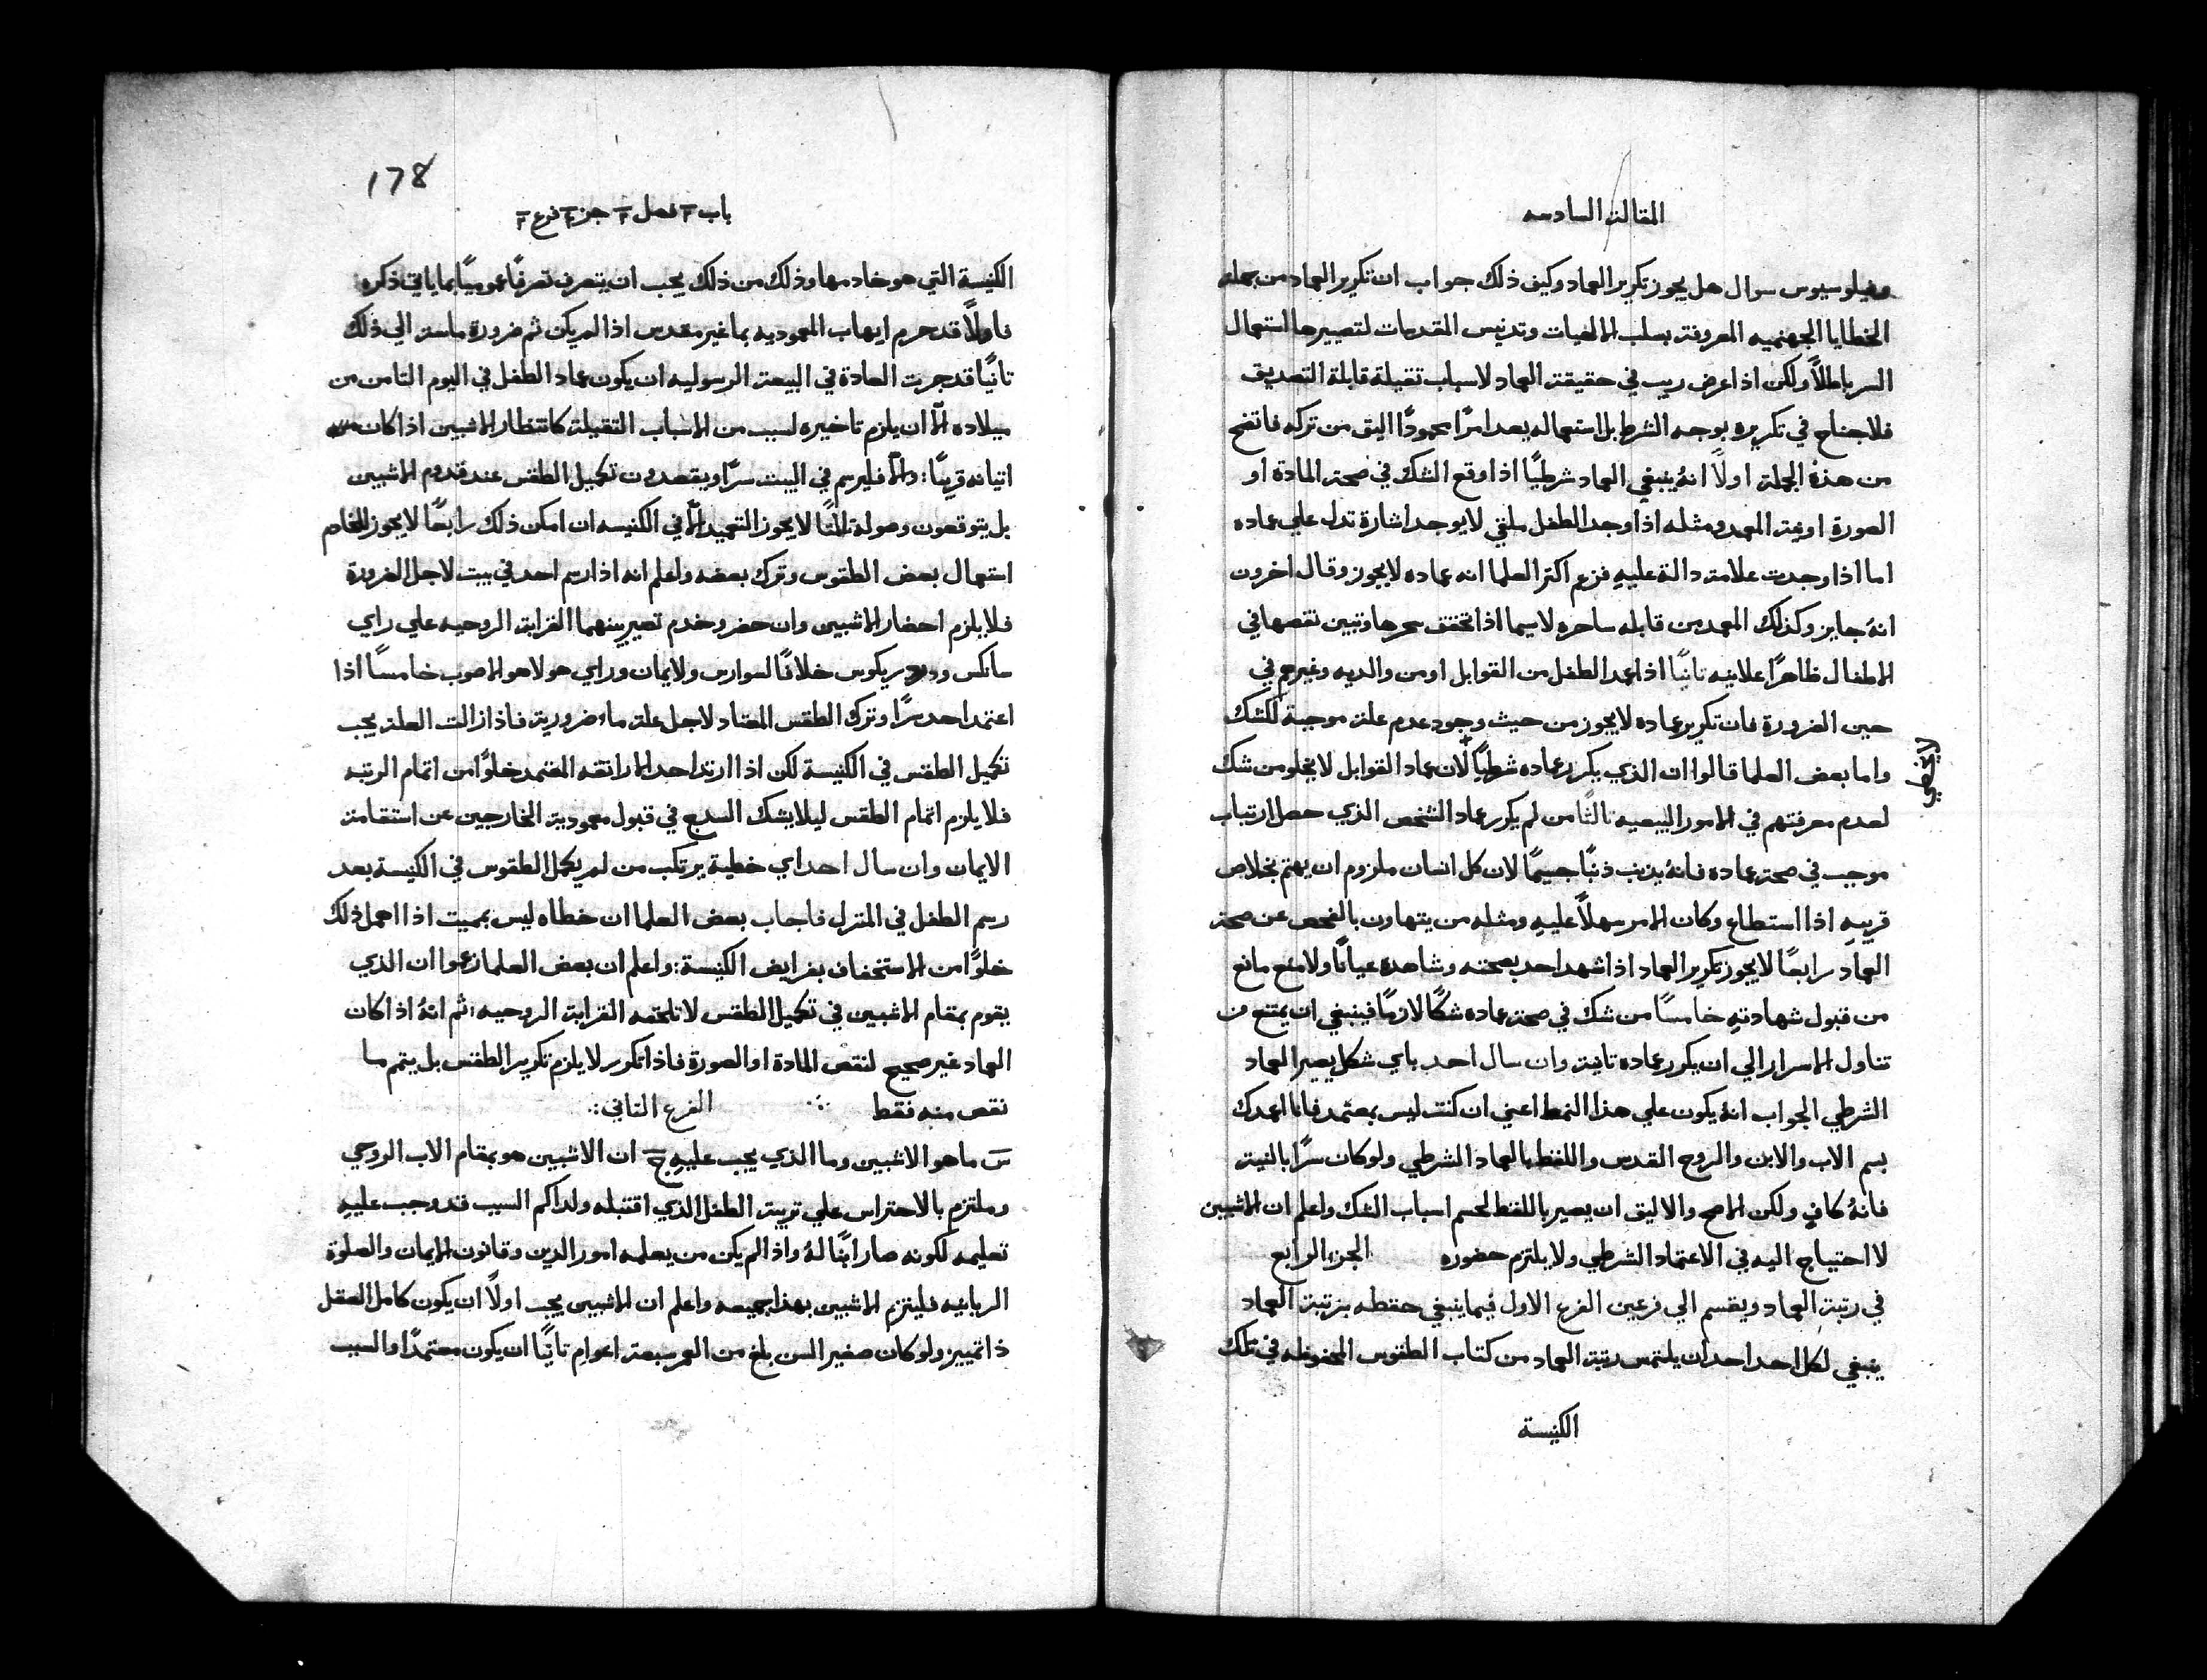 المقالة السادسه
وفيلوسيوس سوال هل يجوز تكرير العماد وكيف ذلك جواب ان تكرير العماد من جملة
الخطايا الجهنميه المعروفة بسلب الالهيات وتدنيس المقدسات لتصييرها استعمال
السر باطلاً ولكن اذا عرض ريب في حقيقة العماد لاسباب ثقيلة قابلة التصديق
فلا جناح في تكريره بوجه الشرط بل استعماله يعد امرًا محمودًا اليق من تركه فاتضح
من هذه الجملة اولاً انهُ ينبغي العماد شرطيًا اذا وقع الشك في صحة المادة او
الصورة او نية المعمد ومثله اذا وجد الطفل ملقي لا يوجد اشارة تدل علي عماده
اما اذا وجدت علامة دالة عليهِ فزعم اكثر العلما انه عماده لا يجوز وقال اخرون
انهُ جايز وكذلك المعمد من قابله ساحره لاسيما اذا تحقق سحرها وتبين نقصها في
الاطفال ظاهرًا علانيه ثانيًا اذا عمد الطفل من القوابل او من والديه وغيرهم في
حين الضرورة فان تكرير عماده لا يجوز من حيث وجود عدم علة موجبة للشك
واما بعض العلما قالوا ان الذي يكرر عماده شرطيًا لان عماد القوابل لا يخلو من شك
لا يخطي
لعدم معرفتهم في الامور البيعيه ثالثًا من لم يكرر عماد الشخص الذي حصل ارتياب
موجب في صحة عماده فانهُ يذنب ذنبًا جسيمًا لان كل انسان ملزوم ان يهتم بخلاص
قريبهِ اذا استطاع وكان الامر سهلاً عليهِ ومثله من يتهاون بالفحص عن صحة
العماد رابعًا لا يجوز تكرير العماد اذا شهد احد بصحته وشاهده عيانًا ولا منع مانع
من قبول شهادتهِ خامسًا من شك في صحة عماده شكًا لازمًا فينبغي ان يمتنع من
تناول الاسرار الي ان يكرر عماده ثانية وان سال احد باي شكل يصير العماد
الشرطي الجواب انهُ يكون علي هذا النمط اعني ان كنت ليس بمعتمد فانا اعمدك
بسم الاب والابن والروح القدس واللفظ بالعماد الشرطي ولو كان سرًا بالنية
فانهُ كافٍ ولكن الاصح والاليق ان يصير باللفظ لحسم اسباب الشك واعلم ان الاشبين
لا احتياج اليه في الاعتماد الشرطي ولا يلتزم حضوره الجزء الرابع
في رتبة العماد ويقسم الي فرعين الفرع الاول فيما ينبغي حفظه برتبة العماد
ينبغي لكل احد احد ان يلتمس رتبة العماد من كتاب الطقوس المحفوظه في تلك
الكنيسة
178
باب فصل جز فرع
الكنيسة التي هو خادمها وذلك من ذلك يجب ان يتعرف تعرفًا عموميًا بما ياتي ذكره
فاولاً قد حرم ايهاب المعموديه بما غير مقدس اذا لم يكن ثم ضرورة ماسة الي ذلك
ثانيًا قد جرت العادة في البيعة الرسوليه ان يكون عماد الطفل في اليوم الثامن من
ميلاده الا ان يلزم تاخيره لسبب من الاسباب الثقيلة كانتظار الاشبين اذا كان
اتيانه قريبًا: والا فليرسم في البيت سرًا ويقصدون تكميل الطقس عند قدوم الاشبين
بل يتوقعون وصوله ثالثًا لا يجوز التعميد الا في الكنيسه ان امكن ذلك رابعًا لا يجوز للخادم
استعمال بعض الطقوس وترك بعضه واعلم انه اذا رسم احد في بيت لاجل الضرورة
فلا يلزم احضار الاشبين وان حضر وخدم تصير بينهما القرابة الروحيه علي راي
سانكس و ريكوس خلافًا لسوارس ولايمان وراي هولا هو الاصوب خامسًا اذا
اعتمد احد سرًا وترك الطقس المعتاد لاجل علة ماء ضرورية فاذا زالت العلة يجب
تكميل الطقس في الكنيسة لكن اذا ارتد احد الاراتقه المعتمد خلوًا من اتمام الرتبه
فلا يلزم اتمام الطقس ليلا يشك السدج في قبول معمودية الخارجين عن استقامة
الايمان وان سال احد اي خطية يرتكب من لم يكمل الطقوس في الكنيسة بعد
رسم الطفل في المنزل فاجاب بعض العلما ان خطاه ليس بمميت اذا اهمل ذلك
خلوًا من الاستخفاف بفرايض الكنيسة: واعلم ان بعض العلما زعموا ان الذي
يقوم بمقام الاشبين في تكميل الطقس لا تلحقه القرابة الروحيه؛ ثم انهُ اذا كان
العماد غير صحيح لنقص المادة او الصورة فاذا تكرر لا يلزم تكرير الطقس بل يتم ما
نقص منه فقط ∴ الفرع الثاني:
س ما هو الاشبين وما الذي يجب عليهِ ج ان الاشبين هو بمقام الاب الروحي
وملتزم بالاحتراس علي تربية الطفل الذي اقتبله ولذاكم السبب قد وجب عليهِ
تعليمه لكونه صار ابًا لهُ واذا لم يكن من يعلمه امور الدين وقانون الايمان والصلوة
الربانيه فليلتزم الاشبين بهذا جميعه واعلم ان الاشبين يجب اولاً ان يكون كامل العقل
ذا تمييز ولو كان صغير السن بلغ من العمر سبعة اعوام ثانيًا ان يكون معتمدًا والسبب